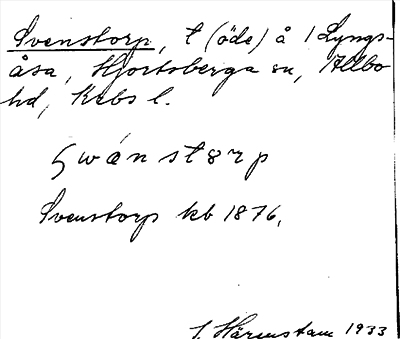 Svenstorp, t (öde) å 1 Lyngs-
åsa, Hjortsberga sn, Allbo
hd, Krbs l.
swánstorp
Svenstorp kb 1876.
J. Härenstam 1933